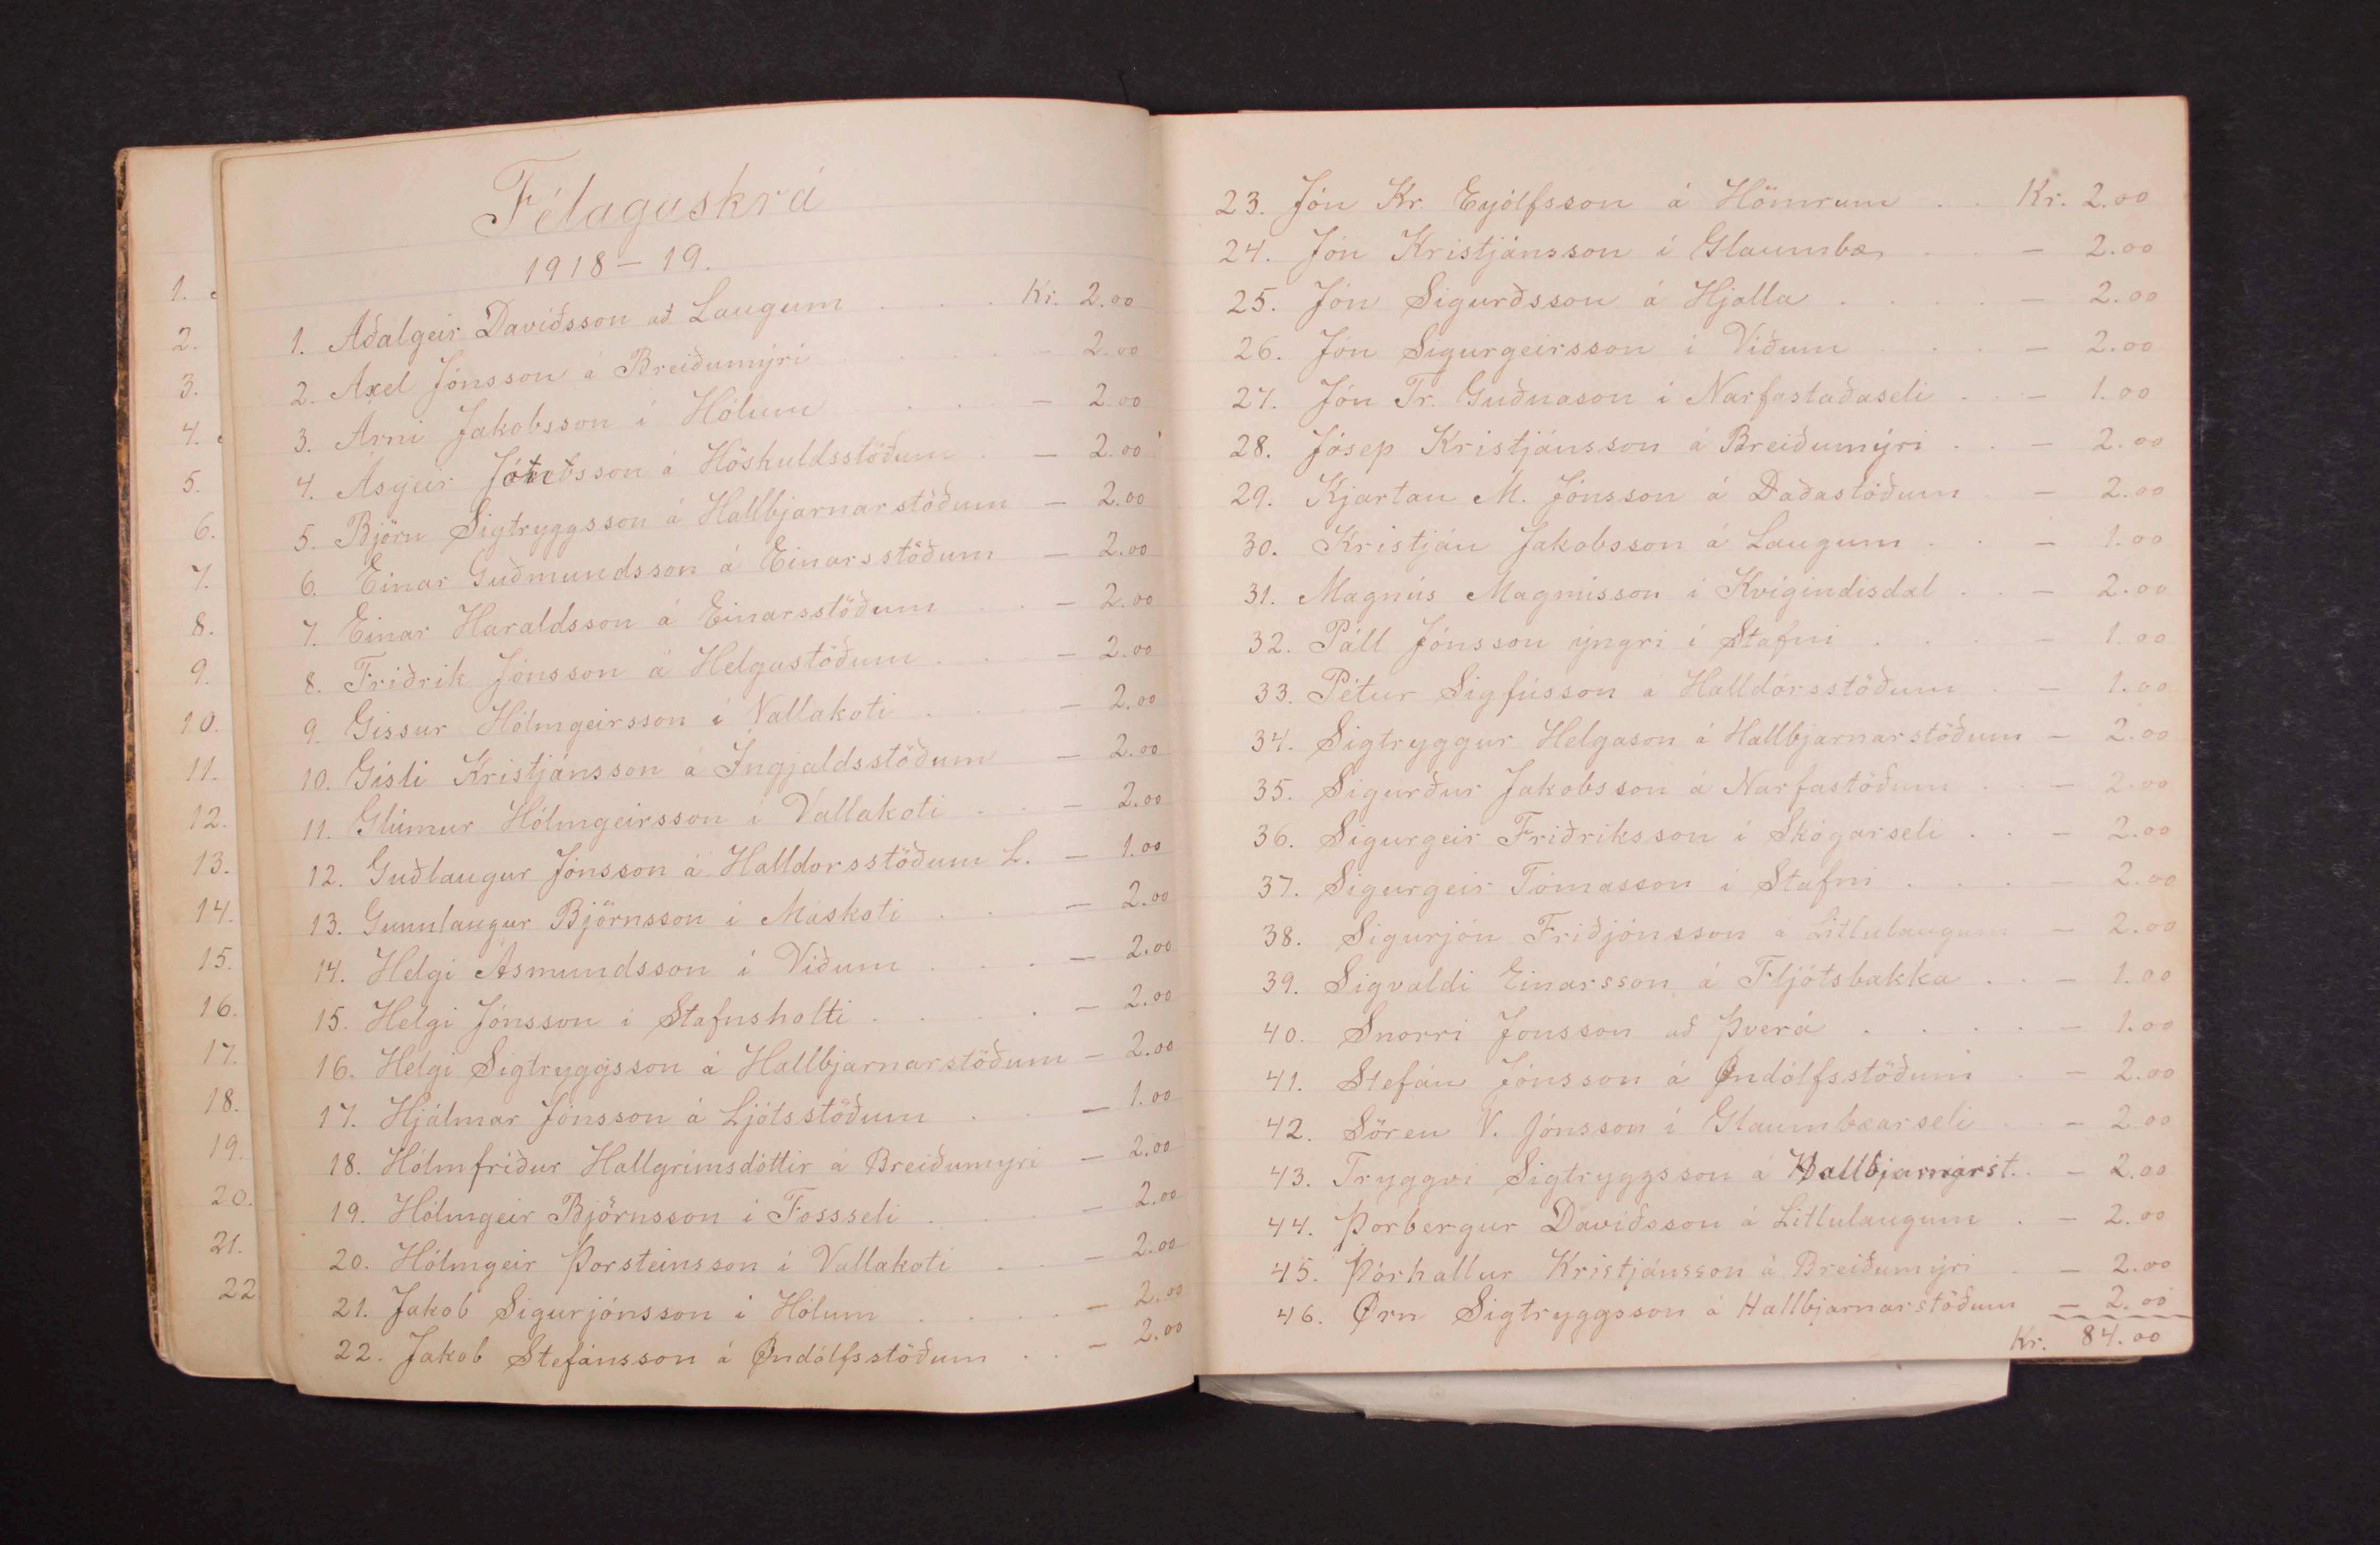 Félagaskrá
1918-19.
1. Aðalgeir Davíðsson að Laugum . . . Kr. 2.00
2. Axel Jónsson á Breiðumýri . . . . - 2.00
3. Árni Jakobsson í Hólum . . . - 2.00
4. Ásgeir á Höskuldsstöðum . - 2.00
5. Björn Sigtryggsson á Hallbjarnarstöðum - 2.00
6. Einar Guðmundsson á Einarsstöðum - 2.00
7. Einar Haraldsson á Einarsstöðum . . - 2.00
8. Friðrik Jónsson á Helgastöðum . . - 2.00
9. Gissur Hólmgeirsson í Vallakoti . . . - 2.00
10. Gísli Kristjánsson á Ingjaldsstöðum - 2.00
11. Glúmur Hólmgeirsson í Vallakoti . . - 2.00
12. Guðlaugur Jónsson á Halldorsstöðum L. - 1.00
13. Gunnlaugur Björnsson í Máskoti . . . - 2.00
14. Helgi Ásmundsson í Víðum . . . - 2.00
15. Helgi Jónsson í Stafnsholti . . . . - 2.00
16. Helgi Sigtryggsson á Hallbjarnarstöðum - 2.00
17. Hjálmar Jónsson á Ljótsstöðum . . - 1.00
18. Hólmfríður Hallgrímsdóttir á Breiðumýri - 2.00
19. Hólmgeir Björnsson í Fossseli . . . - 2.00
20. Hólmgeir Þorsteinsson í Vallakoti . . - 2.00
21. Jakob Sigurjónsson í Hólum . . . . - 2.00
22. Jakob Stefánsson á Øndólfsstöðum . . - 2.00
1.
2.
3.
4.
5.
6.
7.
8.
9.
10.
11.
12.
13.
14.
15.
16.
17.
18.
19.
20.
21.
22
23. Jón Kr. Eyjólfsson á Hömrum . . Kr. 2.00
24. Jón Kristjánsson í Glaumbæ . . - 2.00
25. Jón Sigurðsson á Hjalla . . . . - 2.00
26. Jón Sigurgeirsson í Víðum . . - 2.00
27. Jón Tr. Guðnason í Narfastaðaseli . . - 1.00
28. Jósep Kristjánsson á Breiðumýri . . - 2.00
29. Kjartan M. Jónsson á Daðastöðum . - 2.00
30. Kristján Jakobsson á Laugum . . - 1.00
31. Magnús Magnússon í Kvígindisdal . . - 2.00
32. Páll Jónsson yngri í Stafni . . . - 1.00
33. Pétur Sigfússon á Halldórsstöðum . - 1.00
34. Sigtryggur Helgason á Hallbjarnarstöðum - 2.00
35. Sigurður Jakobsson á Narfastöðum . . - 2.00
36. Sigurgeir Friðriksson í Skógarseli . . - 2.00
37. Sigurgeir Tómasson í Stafni . . . - 2.00
38. Sigurjón Friðjónsson á Litlulaugum - 2.00
39. Sigvaldi Einarsson á Fljótsbakka . . - 1.00
40. Snorri Jónsson að Þverá . . . . - 1.00
41. Stefán Jónsson á Øndólfsstöðum . - 2.00
42. Sören V. Jónsson í Glaumbæarseli . . - 2.00
43. Tryggvi Sigtryggsson á Hallbjarnarst. . - 2.00
44. Þorbergur Davíðsson á Litlulaugum . - 2.00
45. Þórhallur Kristjánsson á Breiðumýri . - 2.00
46. Ørn Sigtryggsson á Hallbjarnarstöðum - 2.00
Kr. 84.00